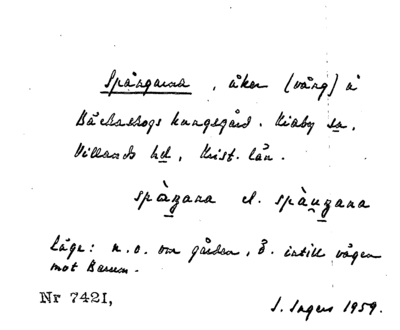 Spångarna, åker (vång) å
Bäckaskogs kungsgård. Kiaby sn,
Villands hd, Krist. län.
spàŋana el. spàuŋana
Läge: n.o. om gården, ö. intill vägen
mot Barum.
Nr 7421,
S. Ingers 1959.